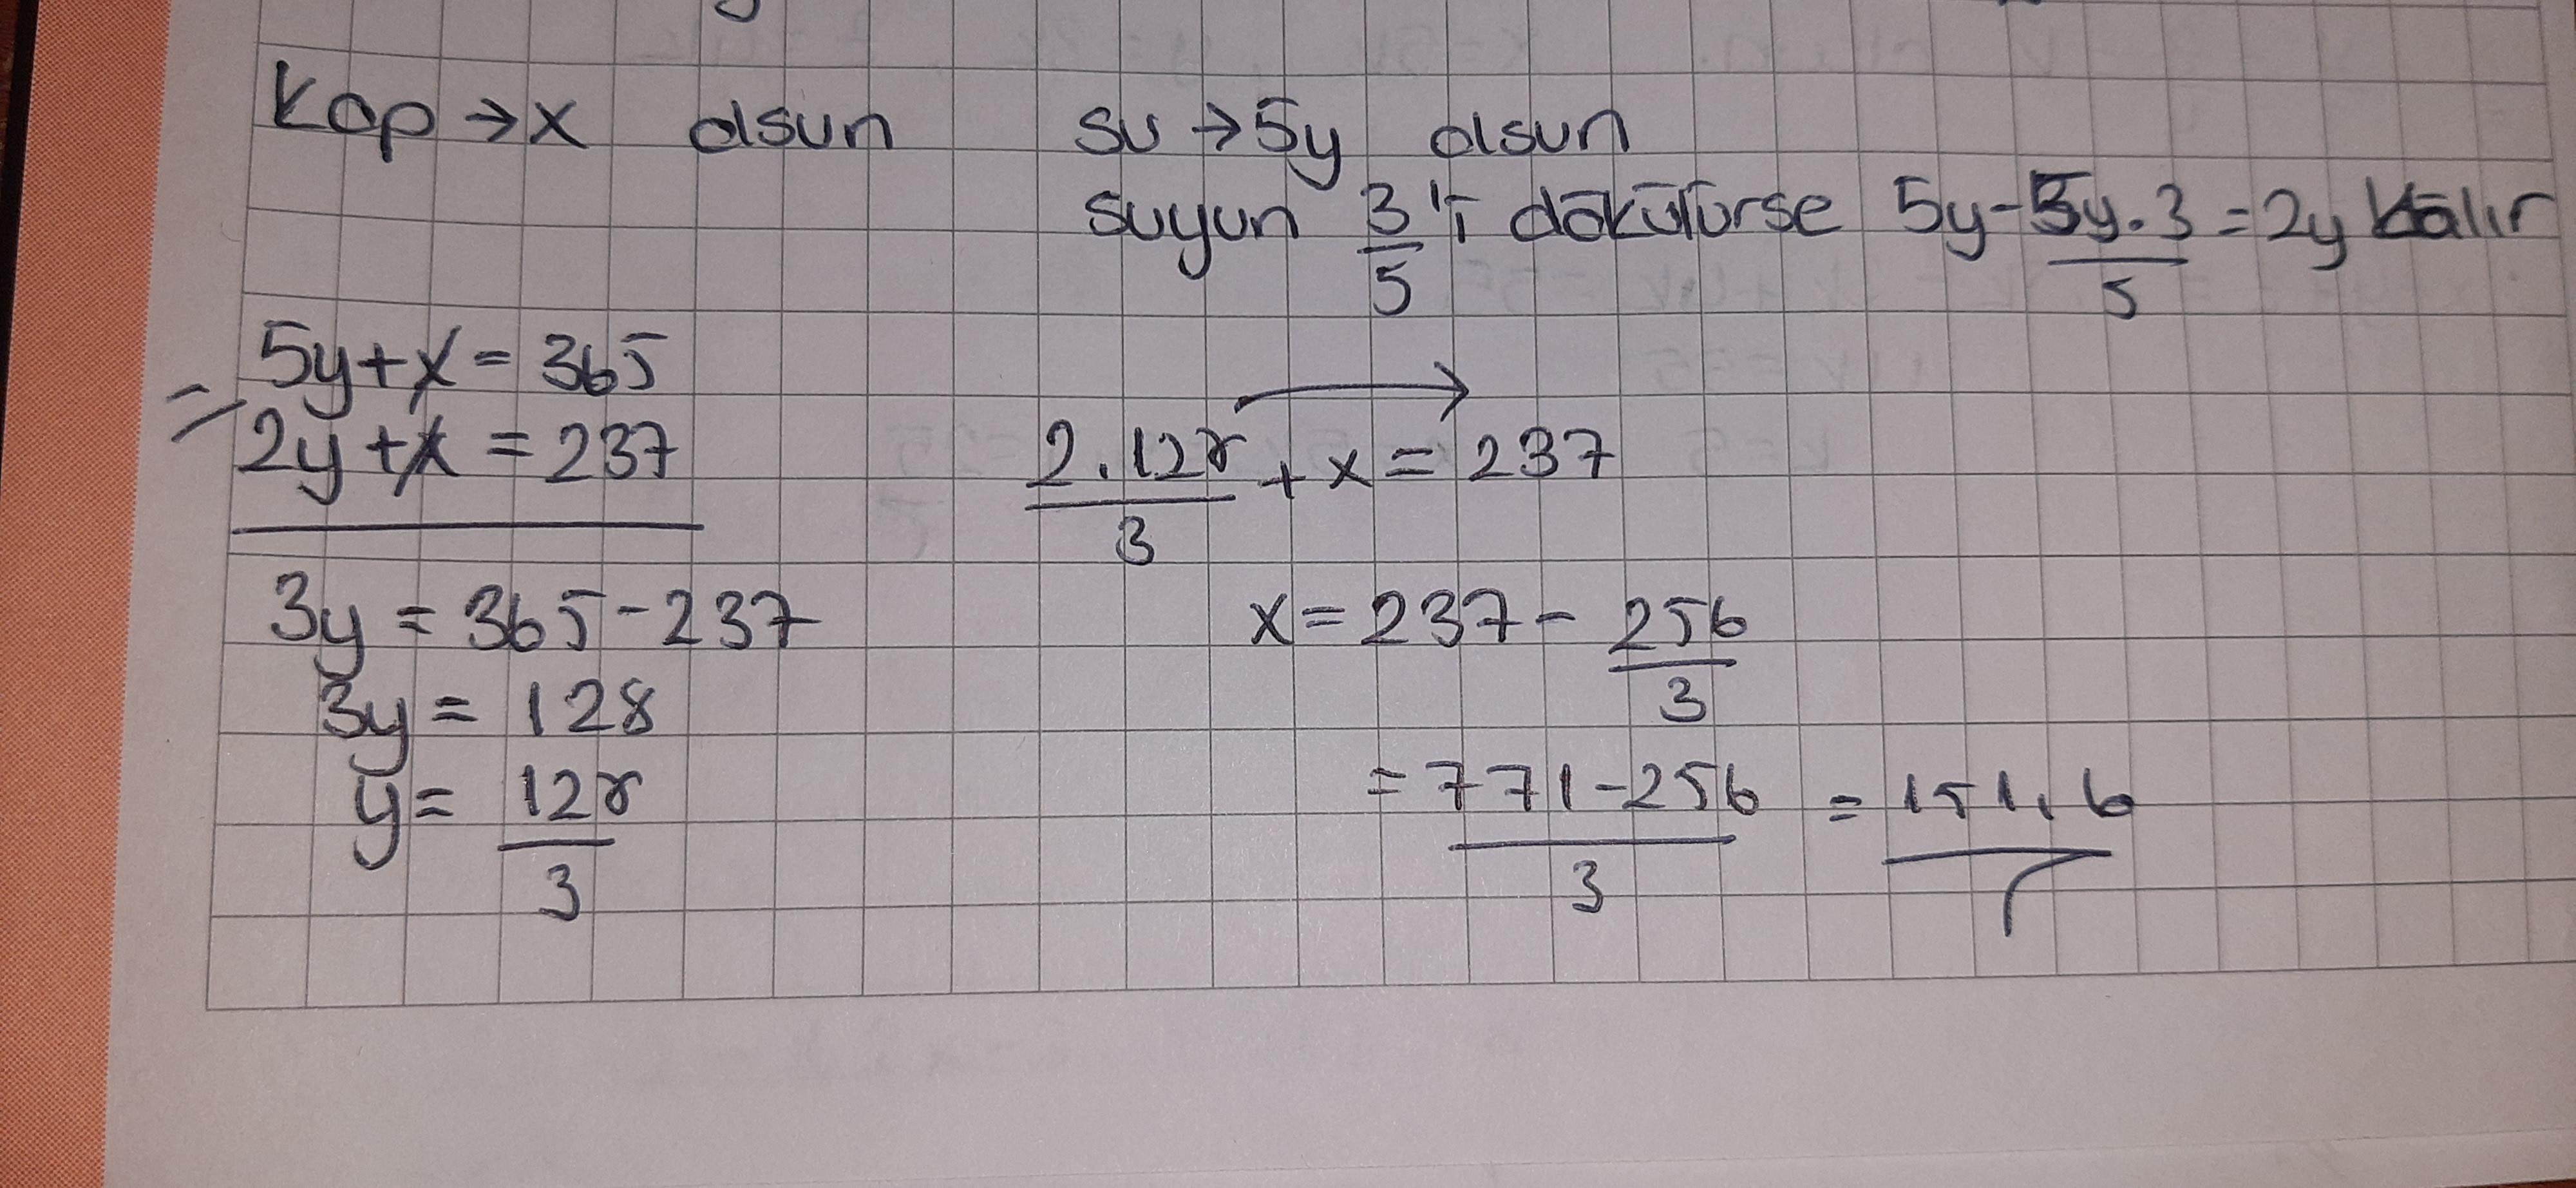 Kap → x olsun
su → 5y olsun
suyun 3/5 'i dökülürse 5y - 5y.3/5 = 2y kalır
5y + x = 365
2y + x = 237
3y = 365 - 237
3y = 128
y = 128/3
2.128/3 + x = 237
x = 237 - 256/3
= 771 - 256/3 = 151,6